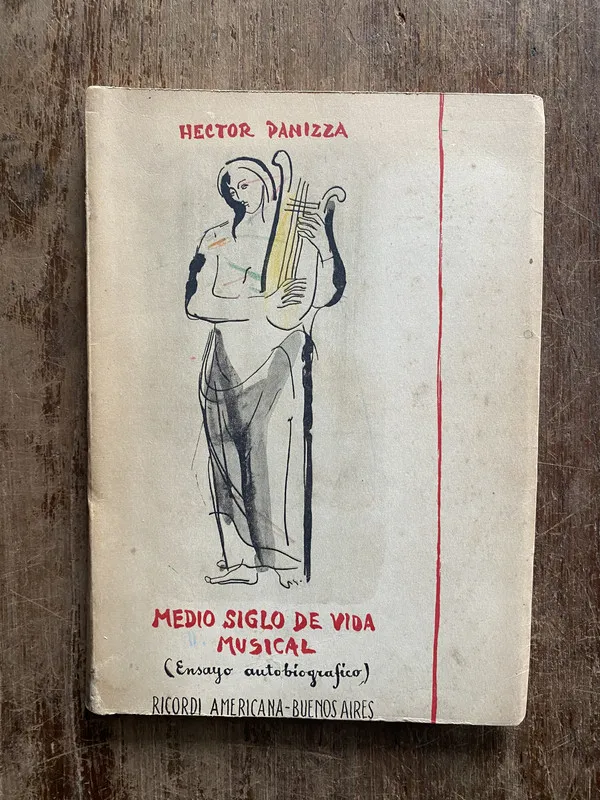 HECTOR PANIZZA
MEDIO SIGLO DE VIDA
MUSICAL
(Ensayo autobiografico)
RICORDI AMERICANA-BUENOS AIRES